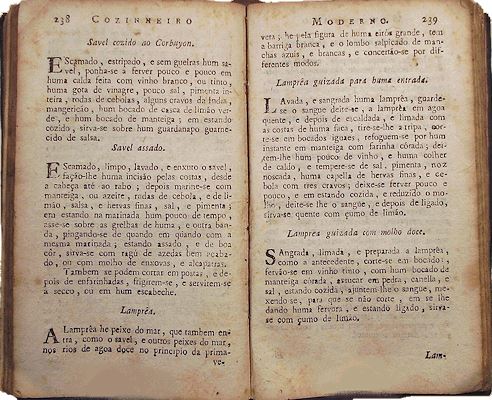 238 COZINHEIRO
Savel cozido no Corbuyon.
Escamado, estripado, e sem guelras hum sa-
vel, ponha-se a ferver pouco e pouco em
huma calda feita com vinho branco, ou tinto,
huma gota de vinagre, pouco sal, pimenta in-
teira, rodas de cebolas, alguns cravos da India,
mangericão, hum bocado de casca de limão ver-
de, e hum bocado de manteiga; em estando
cozido, sirva-se sobre hum guardanapo guarne-
cido de salsa.
Savel assado.
Escamado, limpo, lavado, e enxuto o savel,
fação-lhe huma incisão pelas costas, desde
a cabeça até ao rabo; depois marine-se com
manteiga, ou azeite, rodas de cebola, e de li-
mão, salsa, e hervas finas, sal, e pimenta;
em estando na marinada hum pouco de tempo,
asse-se sobre as grelhas de huma, e outra ban-
da, pingando-se de quando em quando com a
mesma marinada; estando assado, e de boa
côr, sirva-se com ragú de azedas bem acaba-
do, ou com molho de enxovas, e alcaparras.
Tambem se podem cortar em postas, e de-
pois de enfarinhadas, frigirem-se, e servirem-se
a secco, ou em hum escabeche.
Lamprêa.
A Lamprêa he peixe do mar, que tambem en-
tra, como o savel, e outros peixes do mar,
nos rios de agoa doce no principio da prima-
ve-
MODERNO. 239
vera; he pela figura de huma eirós grande, tem
a barriga branca, e o lombo salpicado de man-
chas azuis, e brancas, e concertão-se por dif-
ferentes modos.
Lamprêa guizada para huma entrada.
Lavada, e sangrada huma lamprêa, guarde-
se o sangue deite-se, a lamprêa em agoa
quente, e depois de escaldada, e limada com
as costas de huma faca, tire-se-lhe a tripa, cor-
te-se em bocados iguaes, refoguem-se por hum
instante em manteiga com farinha córada; dei-
tem-lhe hum pouco de vinho, e huma colher
de caldo, e tempere-se de sal, pimenta, noz
noscada, huma capella de hervas finas, e ce-
bola com tres cravos; deixe-se ferver pouco e
pouco, e em estando cozida, e reduzido o mo-
lho, deite-se lhe o sangue, e depois de ligado,
sirva-se quente com çumo de limão.
Lamprea guizada com molho doce.
Sangrada, limada, e preparada a lamprêa,
como a antecedente, corte-se em bocados,
fervão-se em vinho tinto, com hum bocado de
manteiga córada, assucar em pedra, canella, e
sal, estando cozida, ajuntem-lhe o sangue, me-
xendo-se, para que se não corte, em se lhe
dando huma fervura, e estando ligado, sirva-
se com çumo de limão.
Lam-